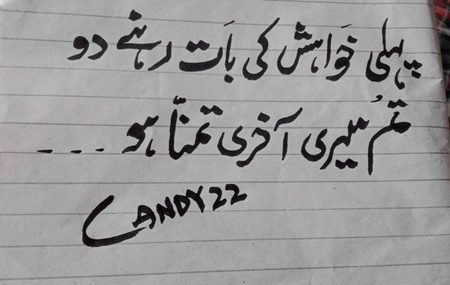 پہلی خواہش کی بَات رہنے دو
تُم میری آخری تمنّا ہو ...
CANDY22